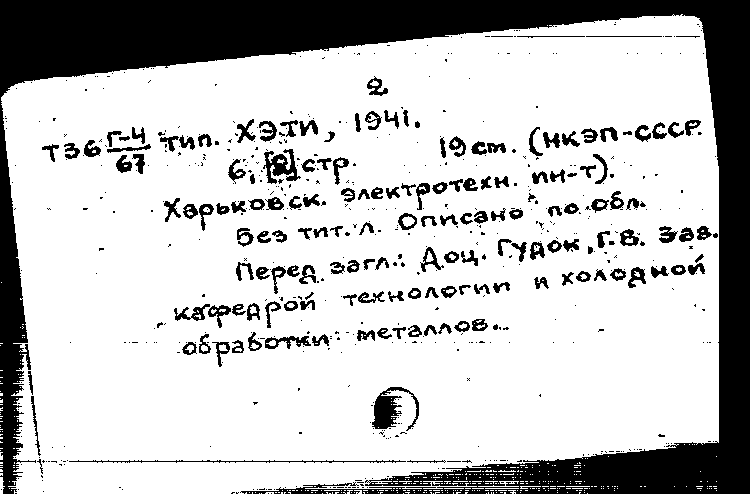 2
Т36 Г-4/67 тип. ХЭТИ, 1941.
6, [2] стр. 19 cm. (НКЭП-СССР.
Харьковск. электротехн. ин-т).
Без тит. л. Описано по обл.
Перед загл.: Доц. Гудок, Г.В. Зав.
кафедрой технологии и холодной
обработки металлов...